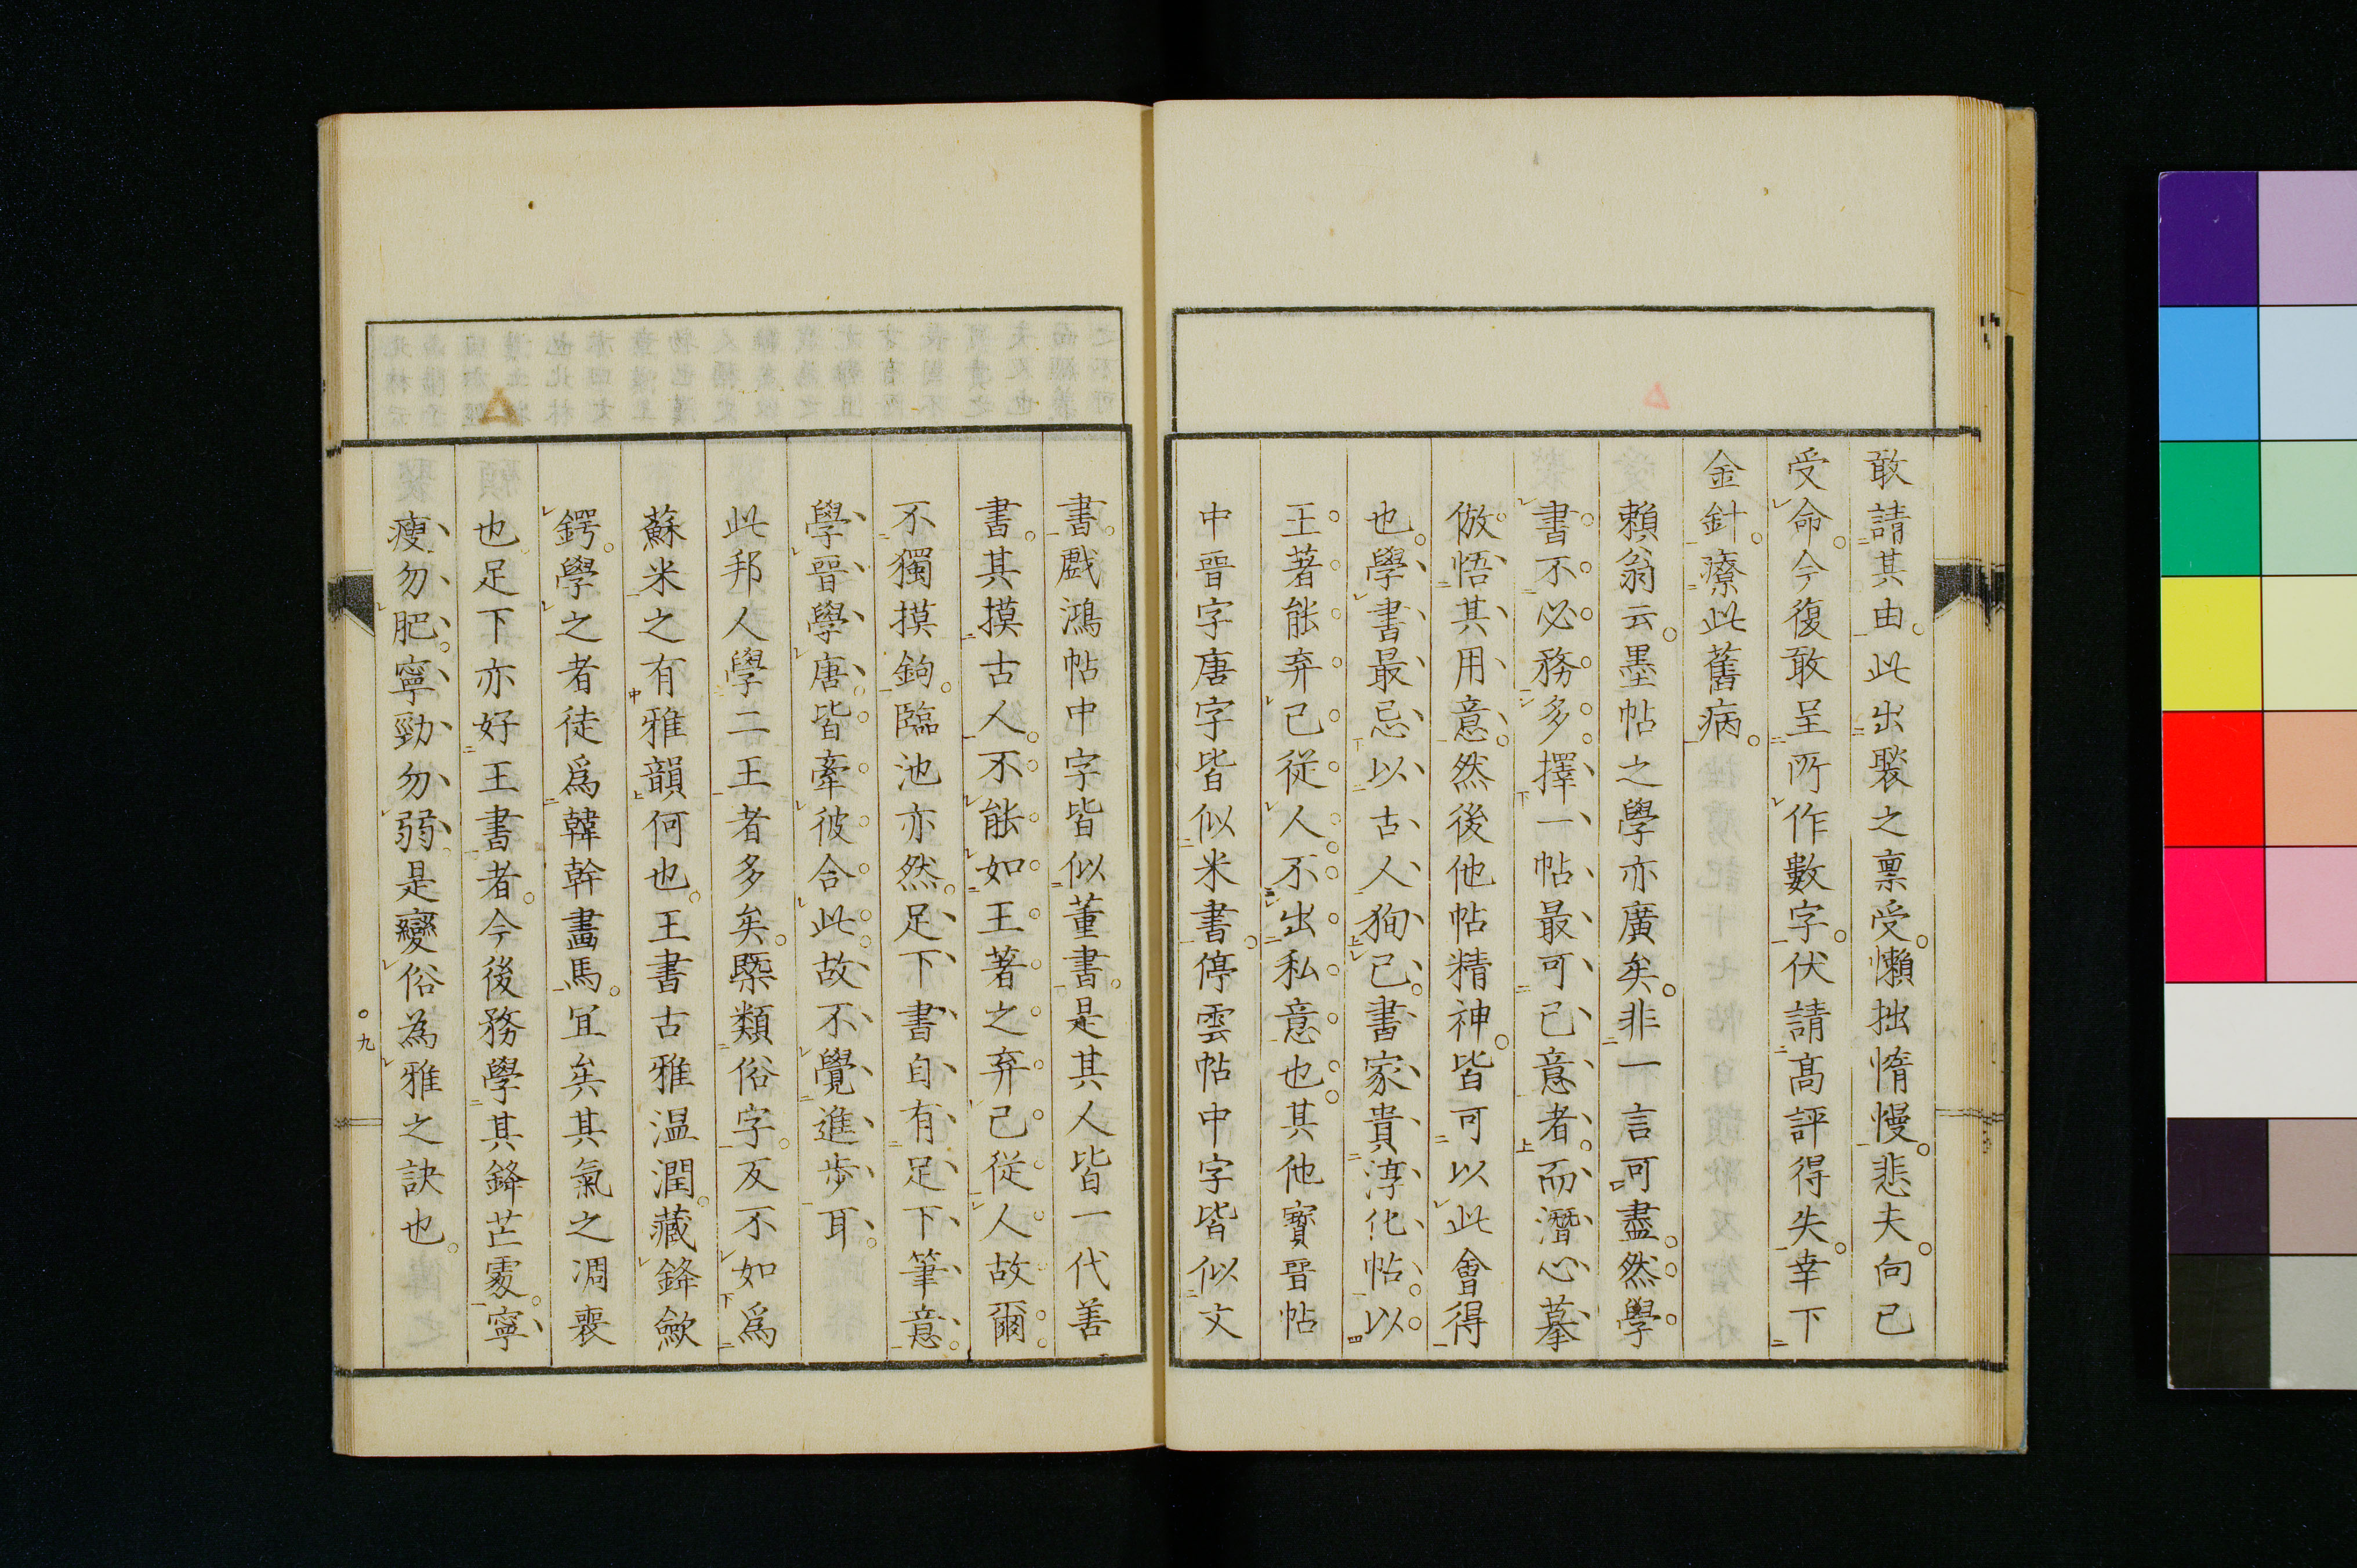 敢請其由此出褧之稟受懶拙惰慢悲夫向已
受命今復敢呈所作數字伏請高評得失幸下
金針療此舊病
賴翁云墨帖之學亦廣矣非一言可盡然學
書不必務多擇一帖最可己意者而潛心摹
倣悟其用意然後他帖精神皆可以此會得
也學書最忌以古人狥己書家貴淳化帖以
王著能弃己從人不出私意也其他寳晉帖
中晉字唐字皆似米書停雲帖中字皆似文
書戲鴻帖中字皆似董書是其人皆一代善
書其摸古人不能如王著之弃己從人故爾
不獨摸鉤臨池亦然足下書自有足下筆意
學晉學唐皆牽彼合此故不覺進步耳
此邦人學二王者多矣槩類俗字反不如爲
蘇米之有雅韻何也王書古雅温潤藏鋒歛
鍔學之者徒爲韓幹畵馬宜矣其氣之凋喪
也足下亦好王書者今後務學其鋒芒處寧
瘦勿肥寧勁勿弱是變俗為雅之訣也
九